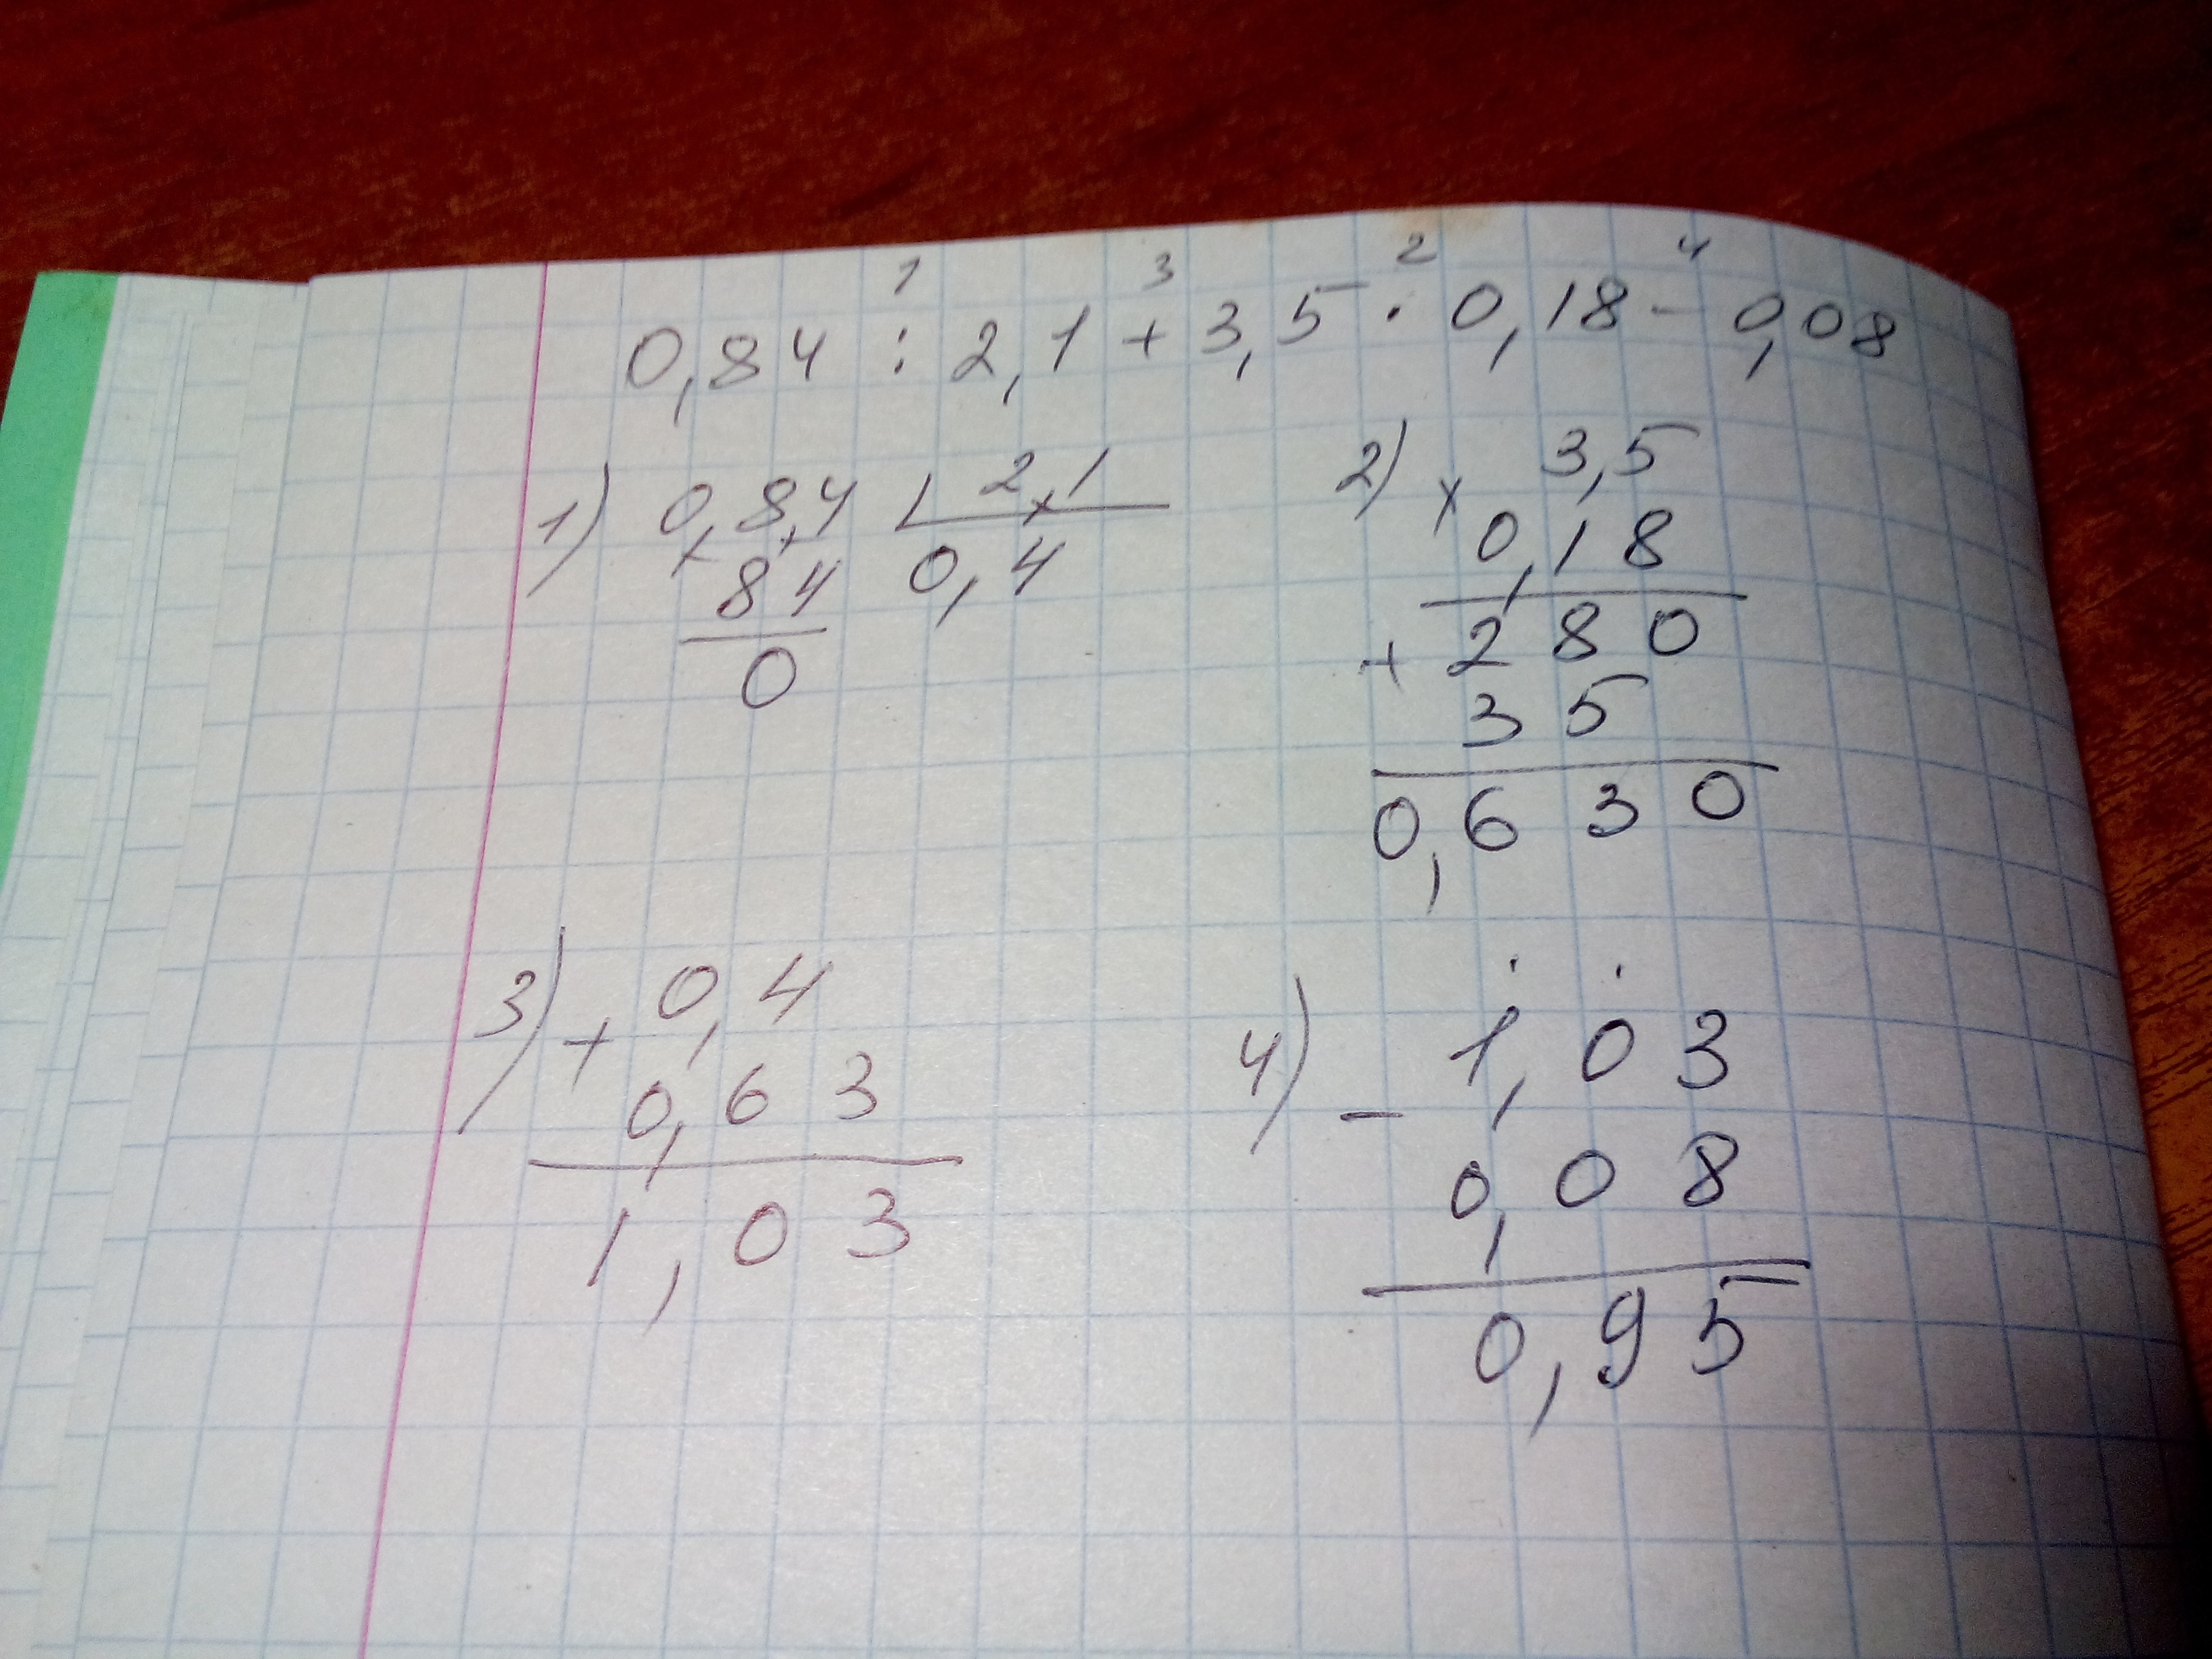 1 3 2 4
0,84 : 2,1 + 3,5 · 0,18 - 0,08
1) 0,8,4 | 2,1
84 0,4
0
2) × 3,5
0,18
+ 280
35
0,630
3) + 0,4
0,63
1,03
4) - 1,03
0,08
0,95